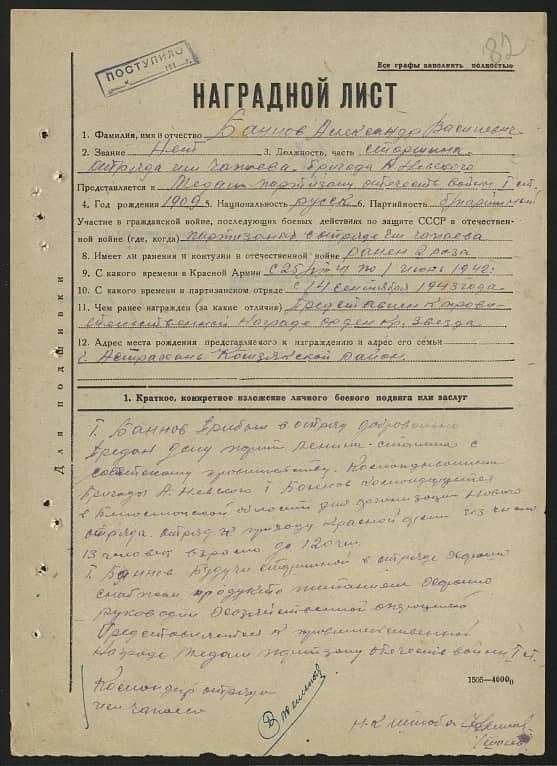 82
Все графы заполнять полностью
ПОСТУПИЛО
НАГРАДНОЙ ЛИСТ
1. Фамилия, имя и отчество Баннов Александр Васильевич
2. Звание Нет 3. Должность, часть старшина
отряда им Чапаева. Бригада А. Невского
Представляется к Медали партизану отечеств войны I ст.
4. Год рождения 1909 5. Национальность русск 6. Партийность б/партийный
Участие в гражданской войне, последующих боевых действиях по защите СССР и отечествен-
ной войне (где, когда) партизанил в отряде им Чапаева
8. Имеет ли ранения и контузии в отечественной войне ранен 2 раза
9. С какого времени в Красной Армии с 25 41 по 1 1942г
10. С какого времени в партизанском отряде с 14 сентября 1943 года
11. Чем ранее награжден (за какие отличия) Представлен к прави-
тельственной Награде орден Кр. Звезда
12. Адрес места рождения представляемого к награждению и адрес его семьи
г. Астрахань район
Для подшивки
1. Краткое, конкретное изложение личного боевого подвига или заслуг
Т. Баннов Прибыл в отряд добровольно
Предан делу партии Ленина-Сталина и
советскому правительству. Командованием
Бригады А. Невского Т Баннов командируется
в области для организации Нового
отряда. отряд к приходу Красной из числа
13 человек вырос до 120 чел.
Т. Баннов Будучи старшиной в отряде Хорошо
снабжал продукто питанием Хорошо
руководил Хозяйственной
Представляется к правительственной
Награде Медали партизану отечеств войны I ст.
1505—4000
Командир отряда
им Чапаева
Н-К штаба